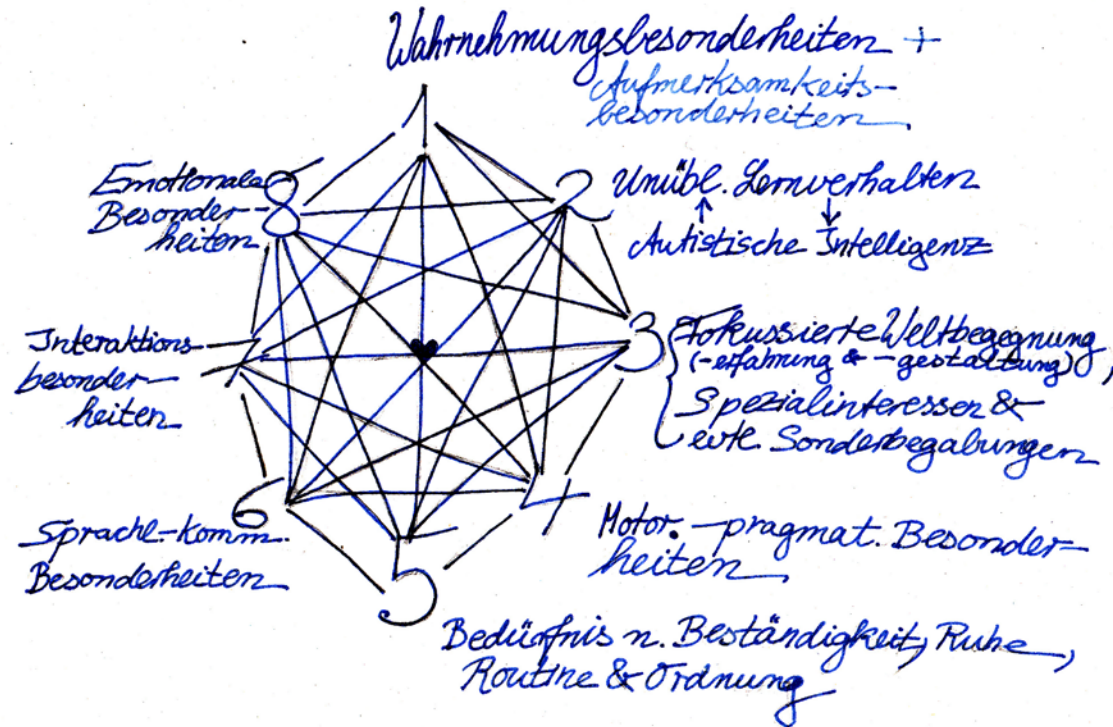 Wahrnehmungsbesonderheiten +
Aufmerksamkeits-
besonderheiten
1
2
Unübl. Lernverhalten
↑ ↓
Autistische Intelligenz
3
Fokussierte Weltbegegnung
(-erfahrung & -gestaltung),
Spezialinteressen &
evtl. Sonderbegabungen
4
Motor.-pragmat. Besonder-
heiten
5
Bedürfnis n. Beständigkeit, Ruhe,
Routine & Ordnung
6
Sprachl.-komm.
Besonderheiten
7
Interaktions-
besonder-
heiten
8
Emotionale
Besonder-
heiten